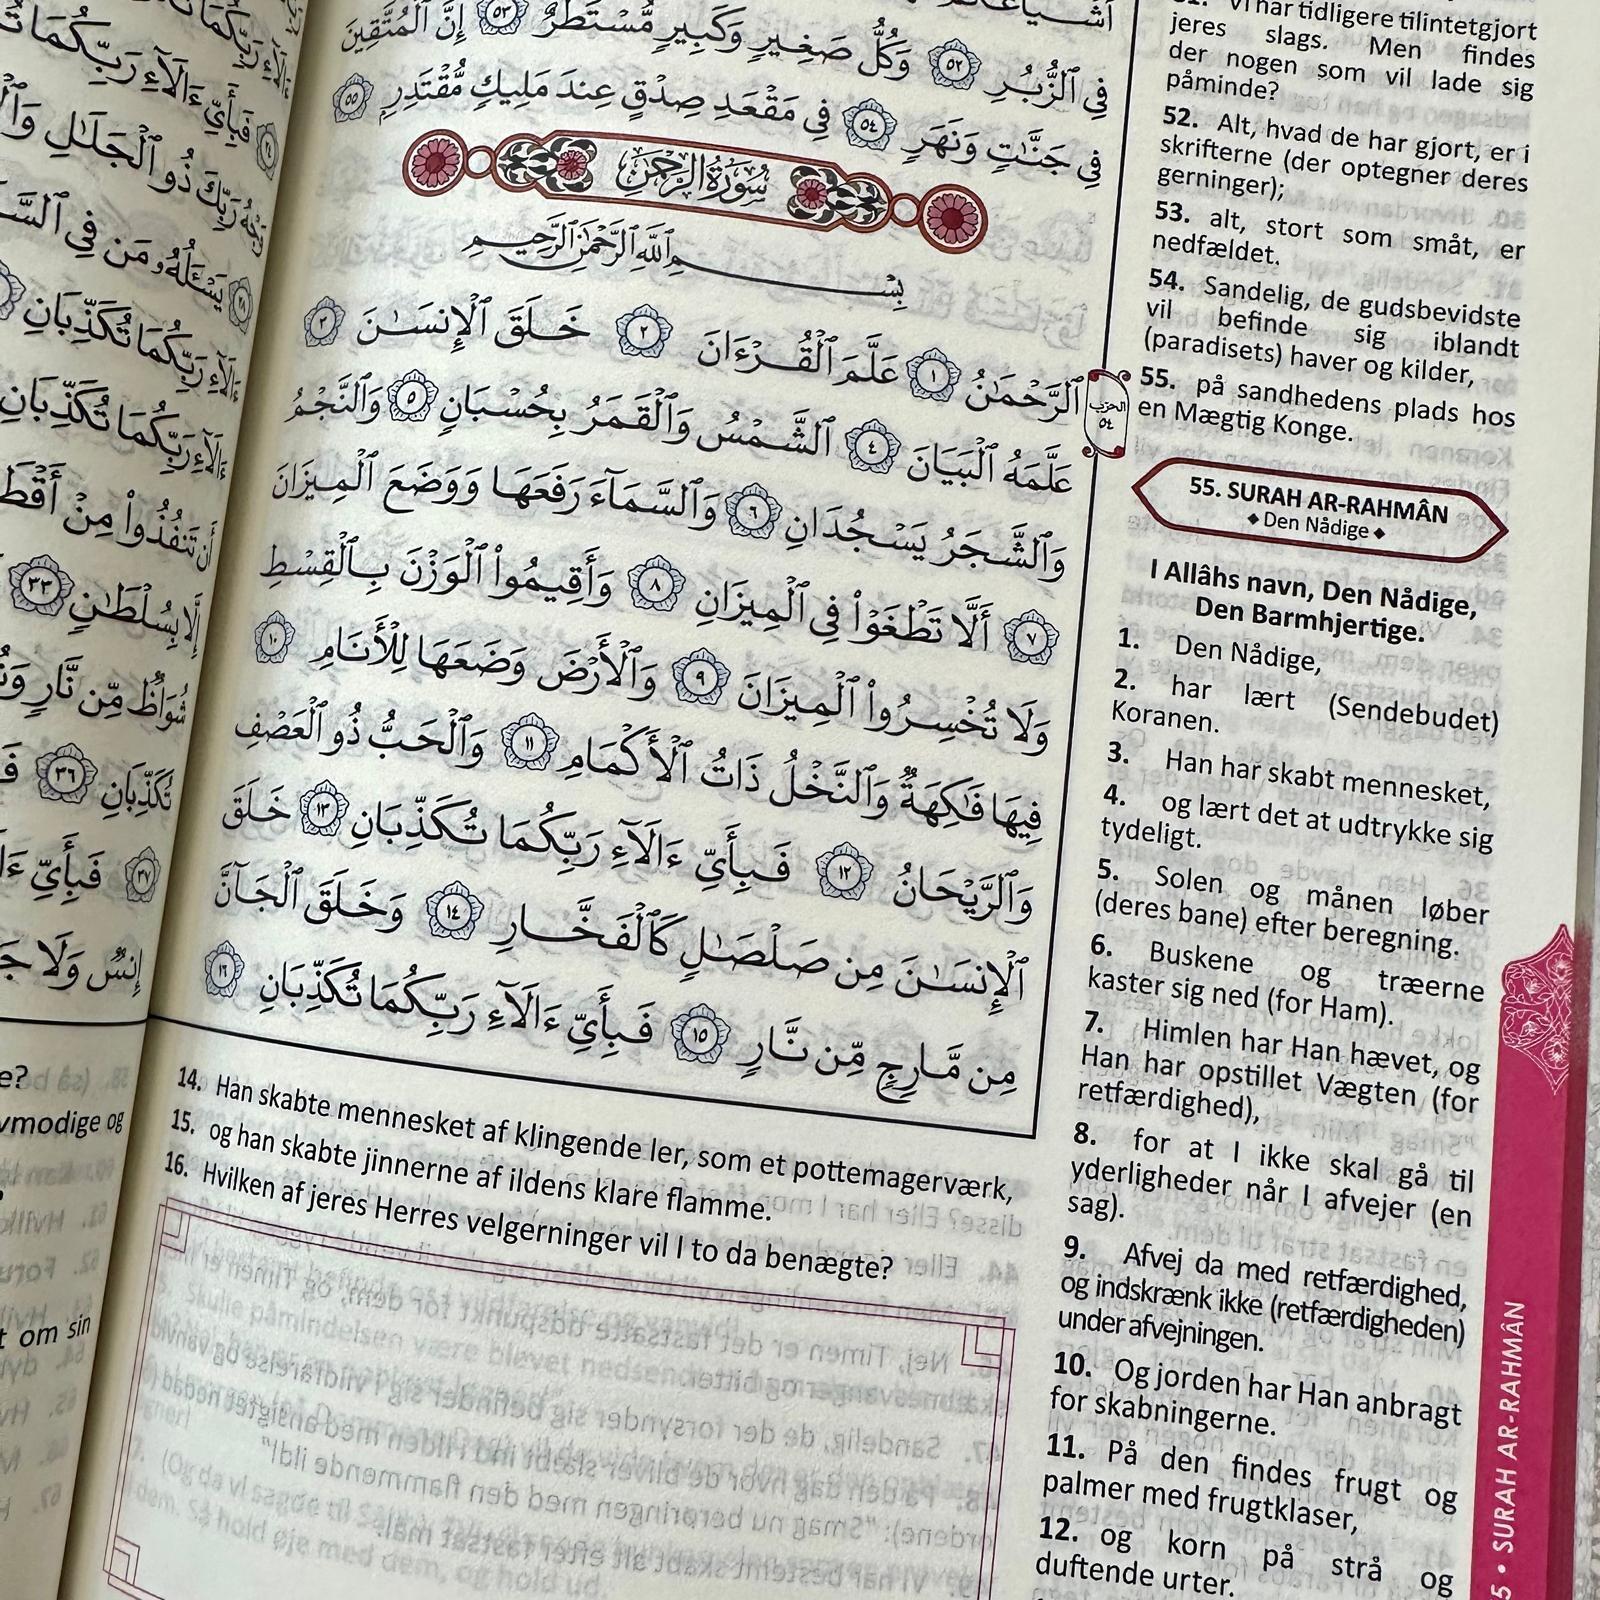 في ٱلزُّبُرِ ٥٢ وَكُلُّ صَغِيرٍ وَكَبِيرٍ مُّسْتَطَرٌ ٥٣ إِنَّ ٱلْمُتَّقِينَ
فِي جَنَّٰتٍ وَنَهَرٍ ٥٤ فِي مَقْعَدِ صِدْقٍ عِندَ مَلِيكٍ مُّقْتَدِرٍ ٥٥
سُورَةُ الرَّحْمَٰن
بِسْمِ ٱللَّهِ ٱلرَّحْمَٰنِ ٱلرَّحِيمِ
ٱلرَّحْمَٰنُ ١ عَلَّمَ ٱلْقُرْءَانَ ٢ خَلَقَ ٱلْإِنسَٰنَ ٣
عَلَّمَهُ ٱلْبَيَانَ ٤ ٱلشَّمْسُ وَٱلْقَمَرُ بِحُسْبَانٍ ٥ وَٱلنَّجْمُ
وَٱلشَّجَرُ يَسْجُدَانِ ٦ وَٱلسَّمَآءَ رَفَعَهَا وَوَضَعَ ٱلْمِيزَانَ
٧ أَلَّا تَطْغَوْا۟ فِي ٱلْمِيزَانِ ٨ وَأَقِيمُوا۟ ٱلْوَزْنَ بِٱلْقِسْطِ
وَلَا تُخْسِرُوا۟ ٱلْمِيزَانَ ٩ وَٱلْأَرْضَ وَضَعَهَا لِلْأَنَامِ ١٠
فِيهَا فَٰكِهَةٌ وَٱلنَّخْلُ ذَاتُ ٱلْأَكْمَامِ ١١ وَٱلْحَبُّ ذُو ٱلْعَصْفِ
وَٱلرَّيْحَانُ ١٢ فَبِأَيِّ ءَالَآءِ رَبِّكُمَا تُكَذِّبَانِ ١٣ خَلَقَ
ٱلْإِنسَٰنَ مِن صَلْصَٰلٍ كَٱلْفَخَّارِ ١٤ وَخَلَقَ ٱلْجَآنَّ
مِن مَّارِجٍ مِّن نَّارٍ ١٥ فَبِأَيِّ ءَالَآءِ رَبِّكُمَا تُكَذِّبَانِ ١٦
الحزب
٥٤
14. Han skabte mennesket af klingende ler, som et pottemagerværk,
15. og han skabte jinnerne af ildens klare flamme.
16. Hvilken af jeres Herres velgerninger vil I to da benægte?
Vi har tidligere tilintetgjort
jeres slags. Men findes
der nogen som vil lade sig
påminde?
52. Alt, hvad de har gjort, er i
skrifterne (der optegner deres
gerninger);
53. alt, stort som småt, er
nedfældet.
54. Sandelig, de gudsbevidste
vil befinde sig iblandt
(paradisets) haver og kilder,
55. på sandhedens plads hos
en Mægtig Konge.
55. SURAH AR-RAHMÂN
◆ Den Nådige ◆
I Allâhs navn, Den Nådige,
Den Barmhjertige.
1. Den Nådige,
2. har lært (Sendebudet)
Koranen.
3. Han har skabt mennesket,
4. og lært det at udtrykke sig
tydeligt.
5. Solen og månen løber
(deres bane) efter beregning.
6. Buskene og træerne
kaster sig ned (for Ham).
7. Himlen har Han hævet, og
Han har opstillet Vægten (for
retfærdighed),
8. for at I ikke skal gå til
yderligheder når I afvejer (en
sag).
9. Afvej da med retfærdighed,
og indskrænk ikke (retfærdigheden)
under afvejningen.
10. Og jorden har Han anbragt
for skabningerne.
11. På den findes frugt og
palmer med frugtklaser,
12. og korn på strå og
duftende urter.
5 • SURAH AR-RAHMÂN